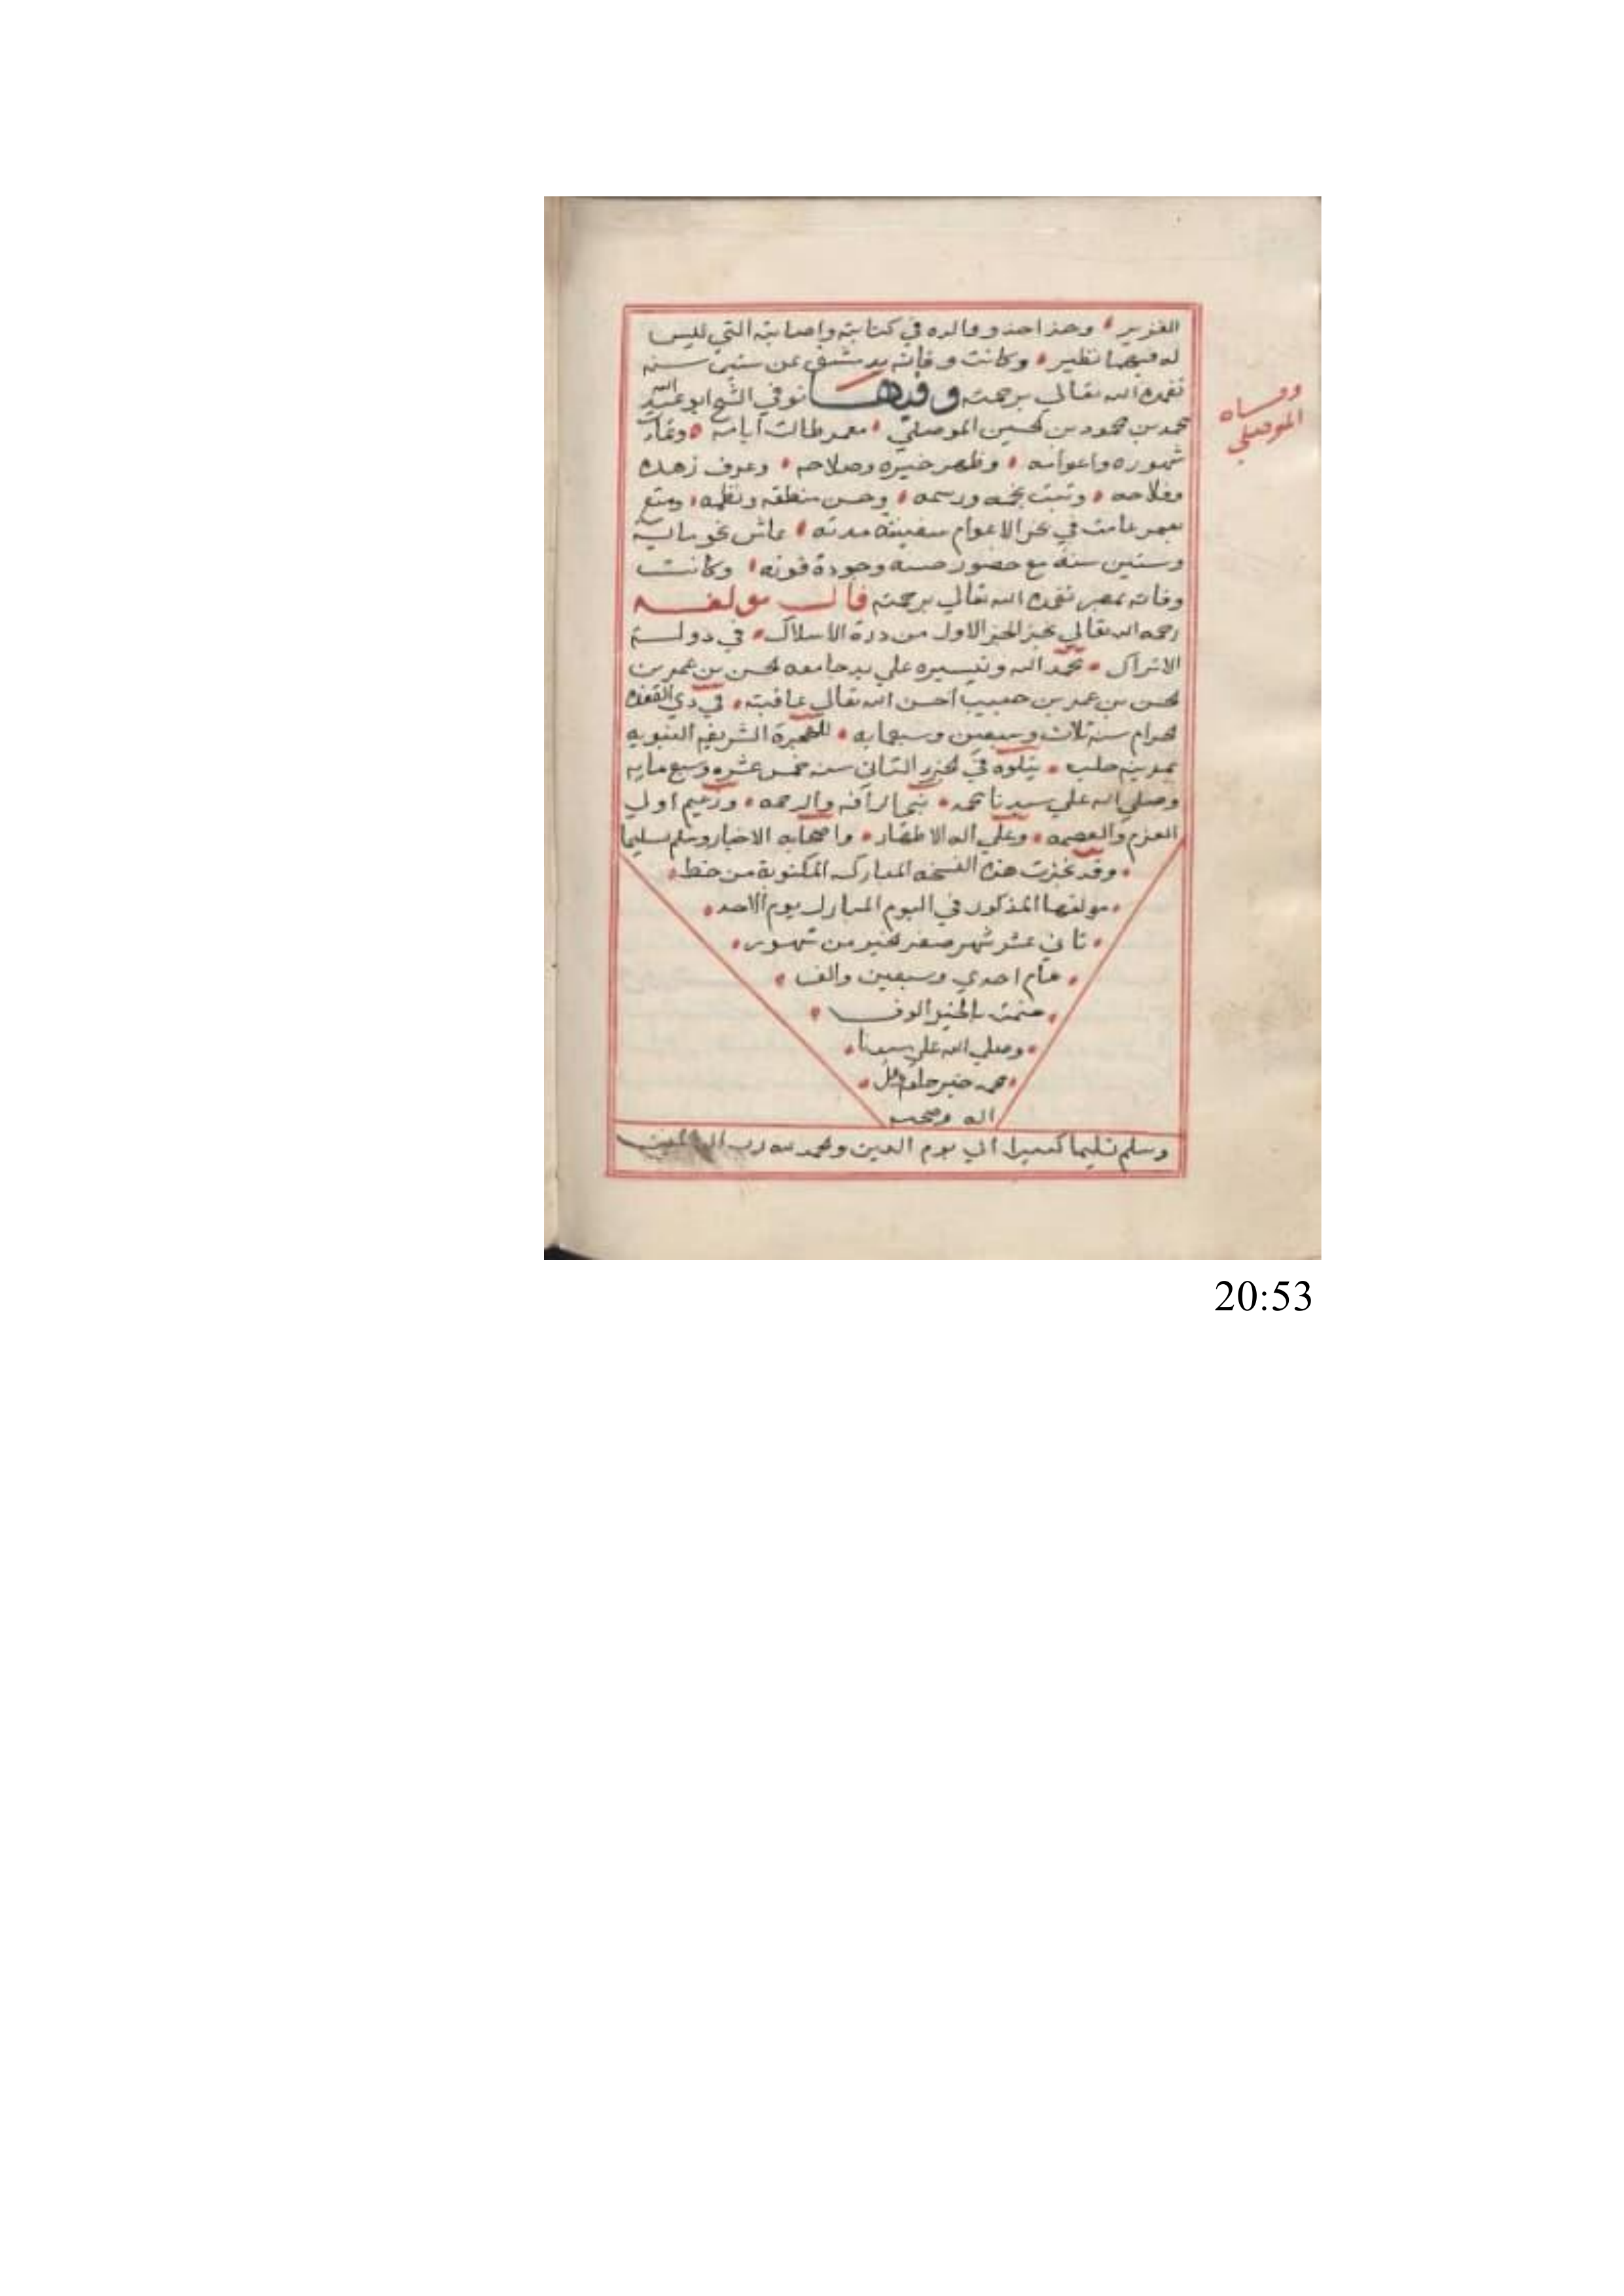 الغزير وحذا حذو والده في كتابته واصابته التي ليس
له فيهما نظير وكانت وفاته بدمشق عن ستين سنه
تغمده الله تعالي برحمته وفيها توفي الشيخ ابو عبد الله
محمد بن محمود بن الحسين الموصلي معمر طالت ايامه
وفاة
الموصلي
شهوره واعوامه وظهر خيره وصلاحه وعرف زهده
وفلاحه وثبت نجمه ورسمه وحسن منطقه ونظمه ومتع
بعمر عامت في بحر الاعوام سفينة مدته عاش نحو مايه
وستين سنة مع حضور حسه وجودة قوته وكانت
وفاته بمصر تغمده الله تعالي برحمته قال مولفه
رحمه الله تعالي نجز الجز الاول من درة الاسلاك في دولة
الاتراك بحمد الله وتيسيره علي يد جامعه الحسن بن عمر بن
الحسن بن عمر بن حبيب احسن الله تعالي عاقبته في ذي القعده
الحرام سنه ثلاث وسبعين وسبعمايه للهجرة الشريفه النبويه
بمدينه حلب يتلوه في الجزء الثاني سنه خمس عشره وسبع مايه
وصلي الله علي سيدنا محمد نبي الرافه والرحمه وزعيم اولي
العزم والعصمه وعلي اله الاطهار واصحابه الاخيار وسلم تسليما
وقد نجزت هذه النسخه المباركه المكتوبة من خط
مولفها المذكور في اليوم المبارك يوم الاحد
ثاني عشر شهر صفر الخير من شهور
عام احدي وسبعين والف
ختمت بالخير الوف
وصلي الله علي سيدنا
محمد خير خلقه
اله وصحبه
وسلم تسليما كثيرا الي يوم الدين والحمد لله رب العالمين
20:53